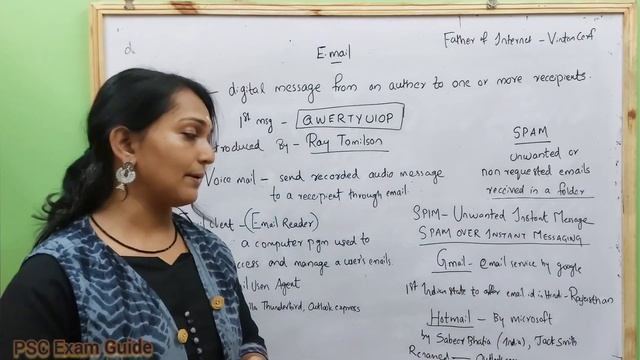 Father of Internet - Vinton Cerf
E-mail
- digital message from an author to one or more receipients.
1st msg - QWERTYUIOP
troduced By - Ray Tomilson
Voice mail - send recorded audio message
to a receipient through email
ail client - (Email Reader)
a computer pgm used to
ccess and manage a user's emails.
il User Agent
lla Thunderbird, Outlook express
SPAM
unwanted or
non requested emails
received in a folder
SPIM - Unwanted Instant Message
SPAM OVER INSTANT MESSAGING
Gmail - email service by google
1st Indian state to offer email id in Hindi - Rajasthan
Hotmail - By microsoft
by Sabeer Bhatia (India), Jack Smith
Renamed - Outlook
PSC Exam Guide